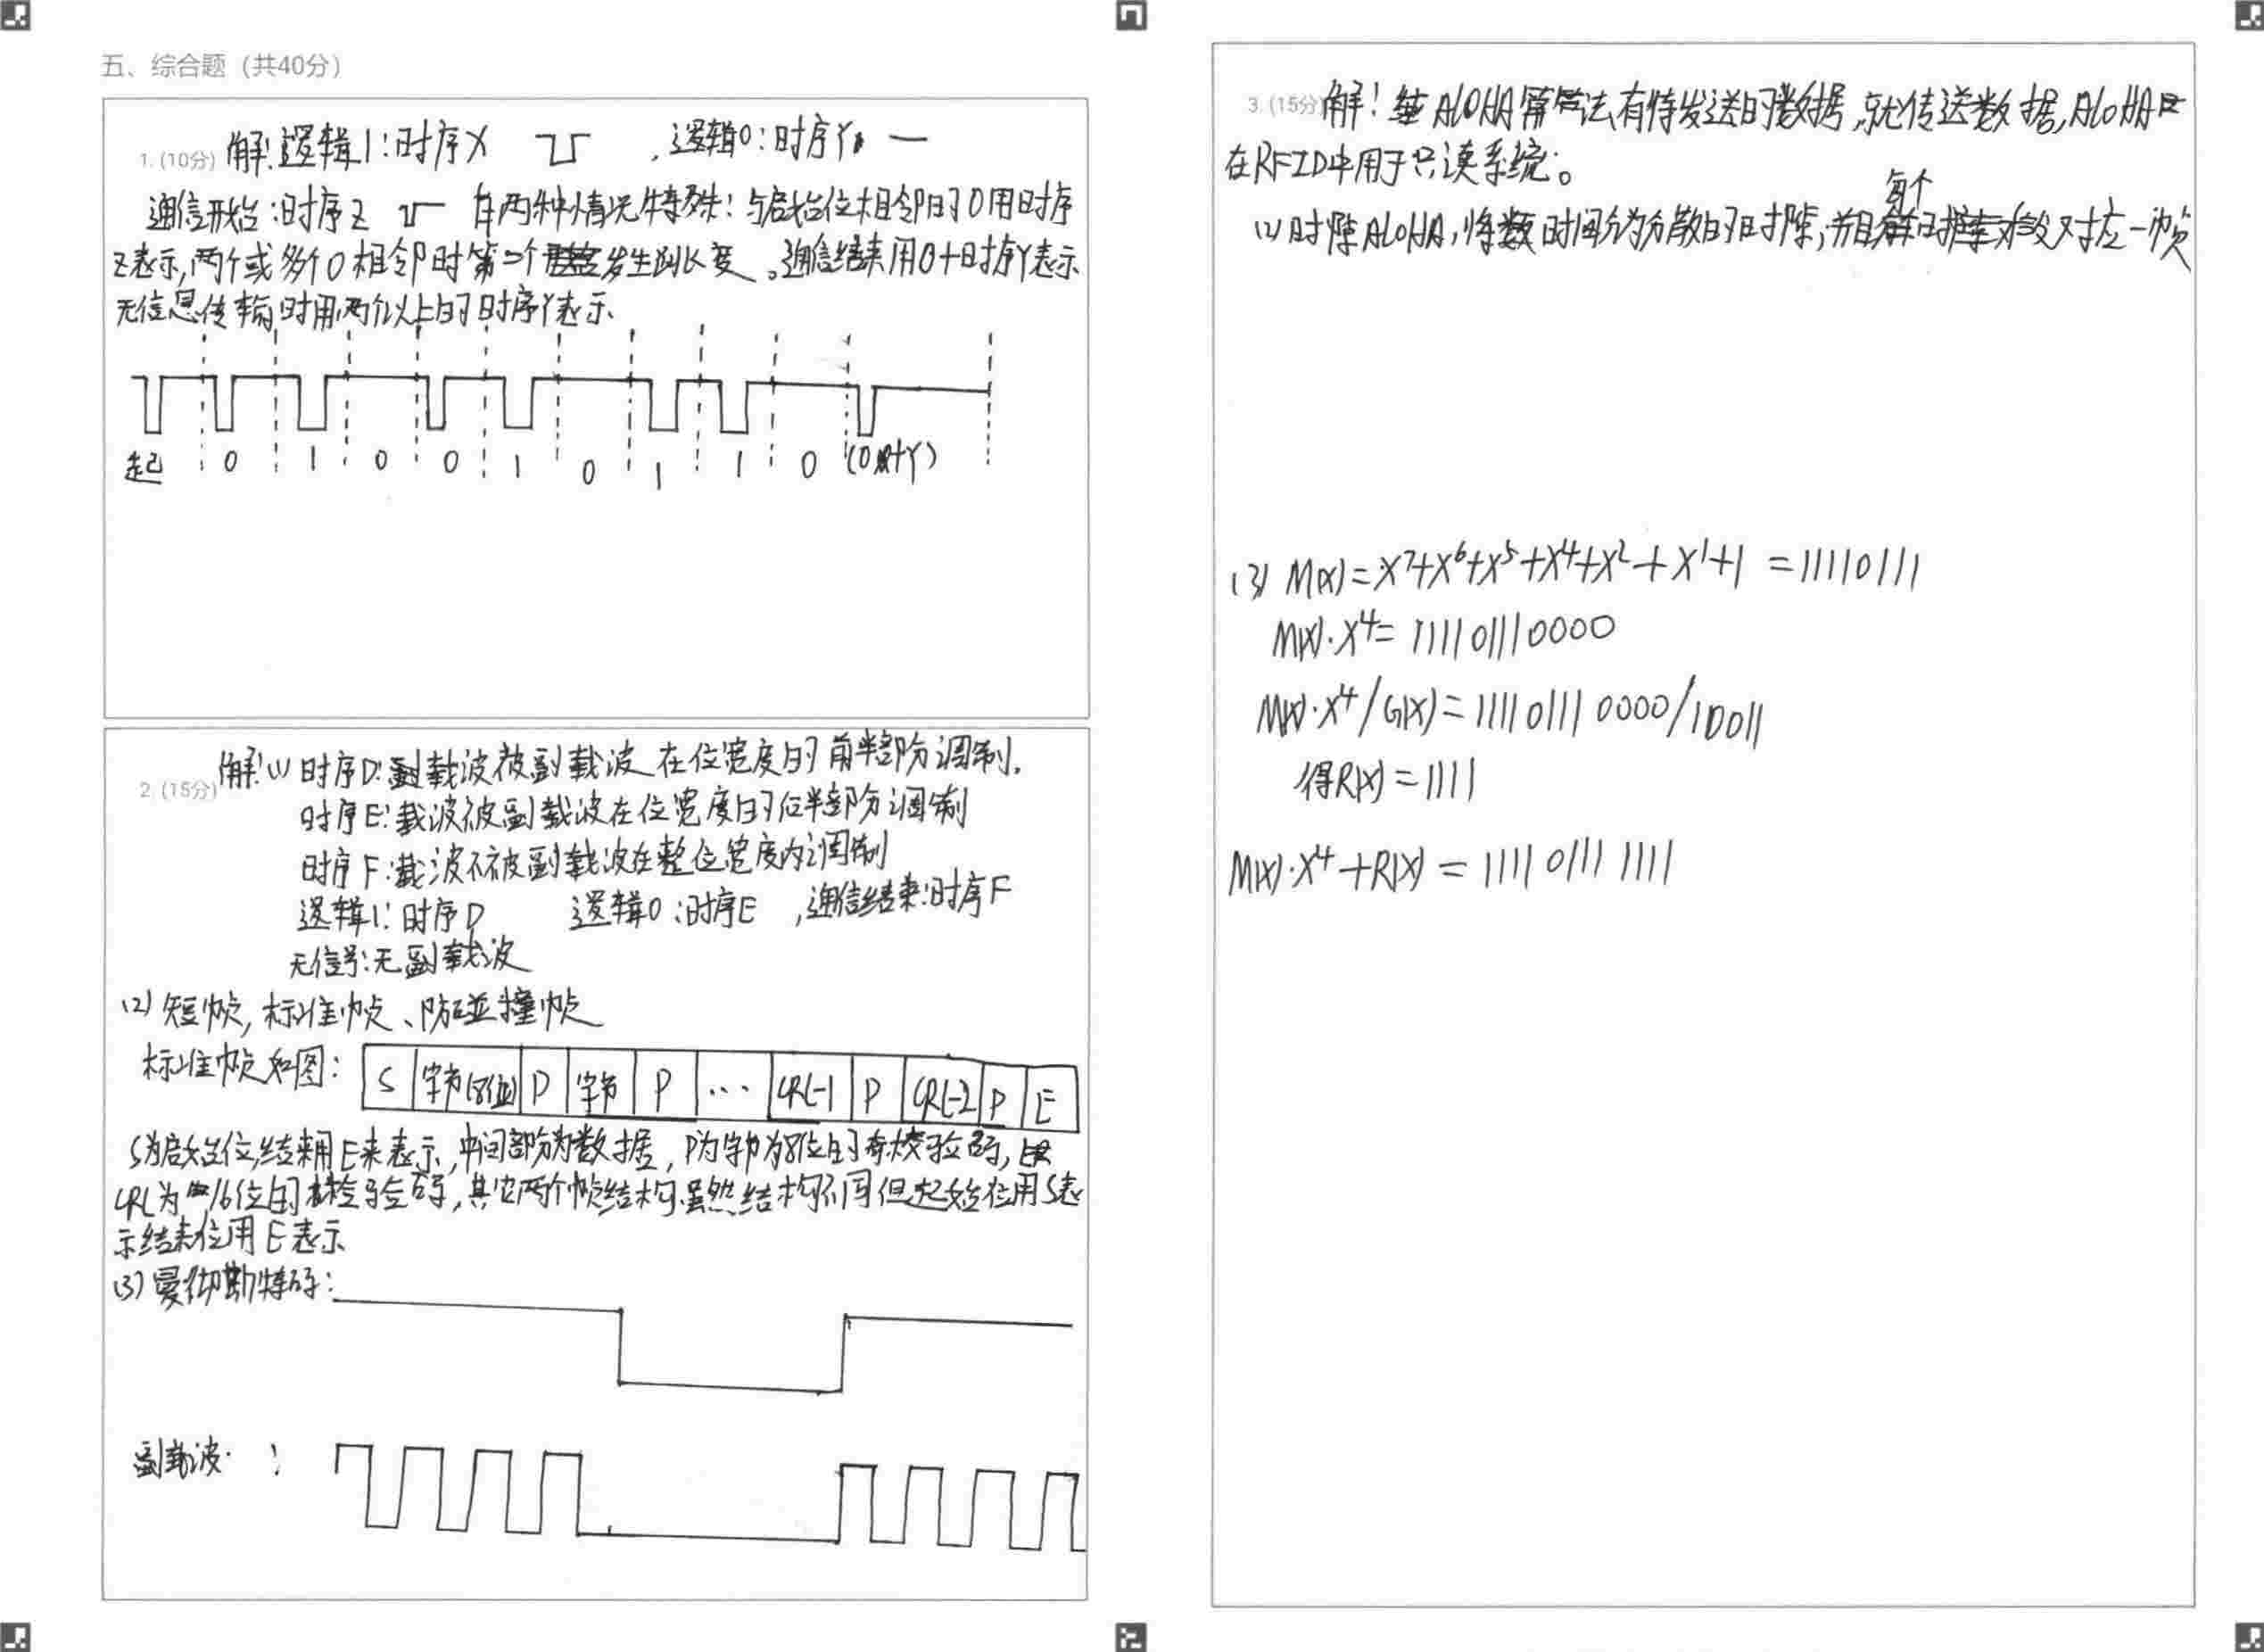 五、综合题（共40分）
1. (10分) 解：逻辑1：时序X ，逻辑0：时序Y
通信开始：时序Z 有两种情况特殊：与启始位相邻的0用时序
Z表示，两个或多个0相邻时第二个 发生 变。通信结束用0+时序Y表示
无信息传输时用两个以上的时序Y表示
起 0 1 0 0 1 0 1 1 0 (0 时Y)
2. (15分) 解：(1) 时序D：载波被副载波在位宽度的前半部分调制.
时序E：载波被副载波在位宽度的后半部分调制
时序F：载波不被副载波在整位宽度内调制
逻辑1：时序D 逻辑0：时序E ，通信结束：时序F
无信号：无副载波
(2) 短帧，标准帧、防碰撞帧
标准帧如图：S 字节(8位) P 字节 P … CRC-1 P CRC-2 P E
S为启始位，结束用E来表示，中间部分为数据，P为字节为8位的奇校验码，
CRC为16位的 检验码，其它两个帧结构虽然结构不同但起始位用S表
示结束位用E表示
(3) 曼彻斯特码：
副载波：
3. (15分) 解： ALOHA算法有待发送的数据，就传送数据，ALOHA
在RFID中用于只读系统。
(2) 时隙ALOHA，将 时间分为分散的时隙，并且每个 对应一帧
(3) M(X)=X⁷+X⁶+X⁵+X⁴+X²+X¹+1 =11110111
M(X)·X⁴= 111101110000
M(X)·X⁴/G(X)=11110111 0000/10011
得R(X)=1111
M(X)·X⁴+R(X) = 1111 0111 1111